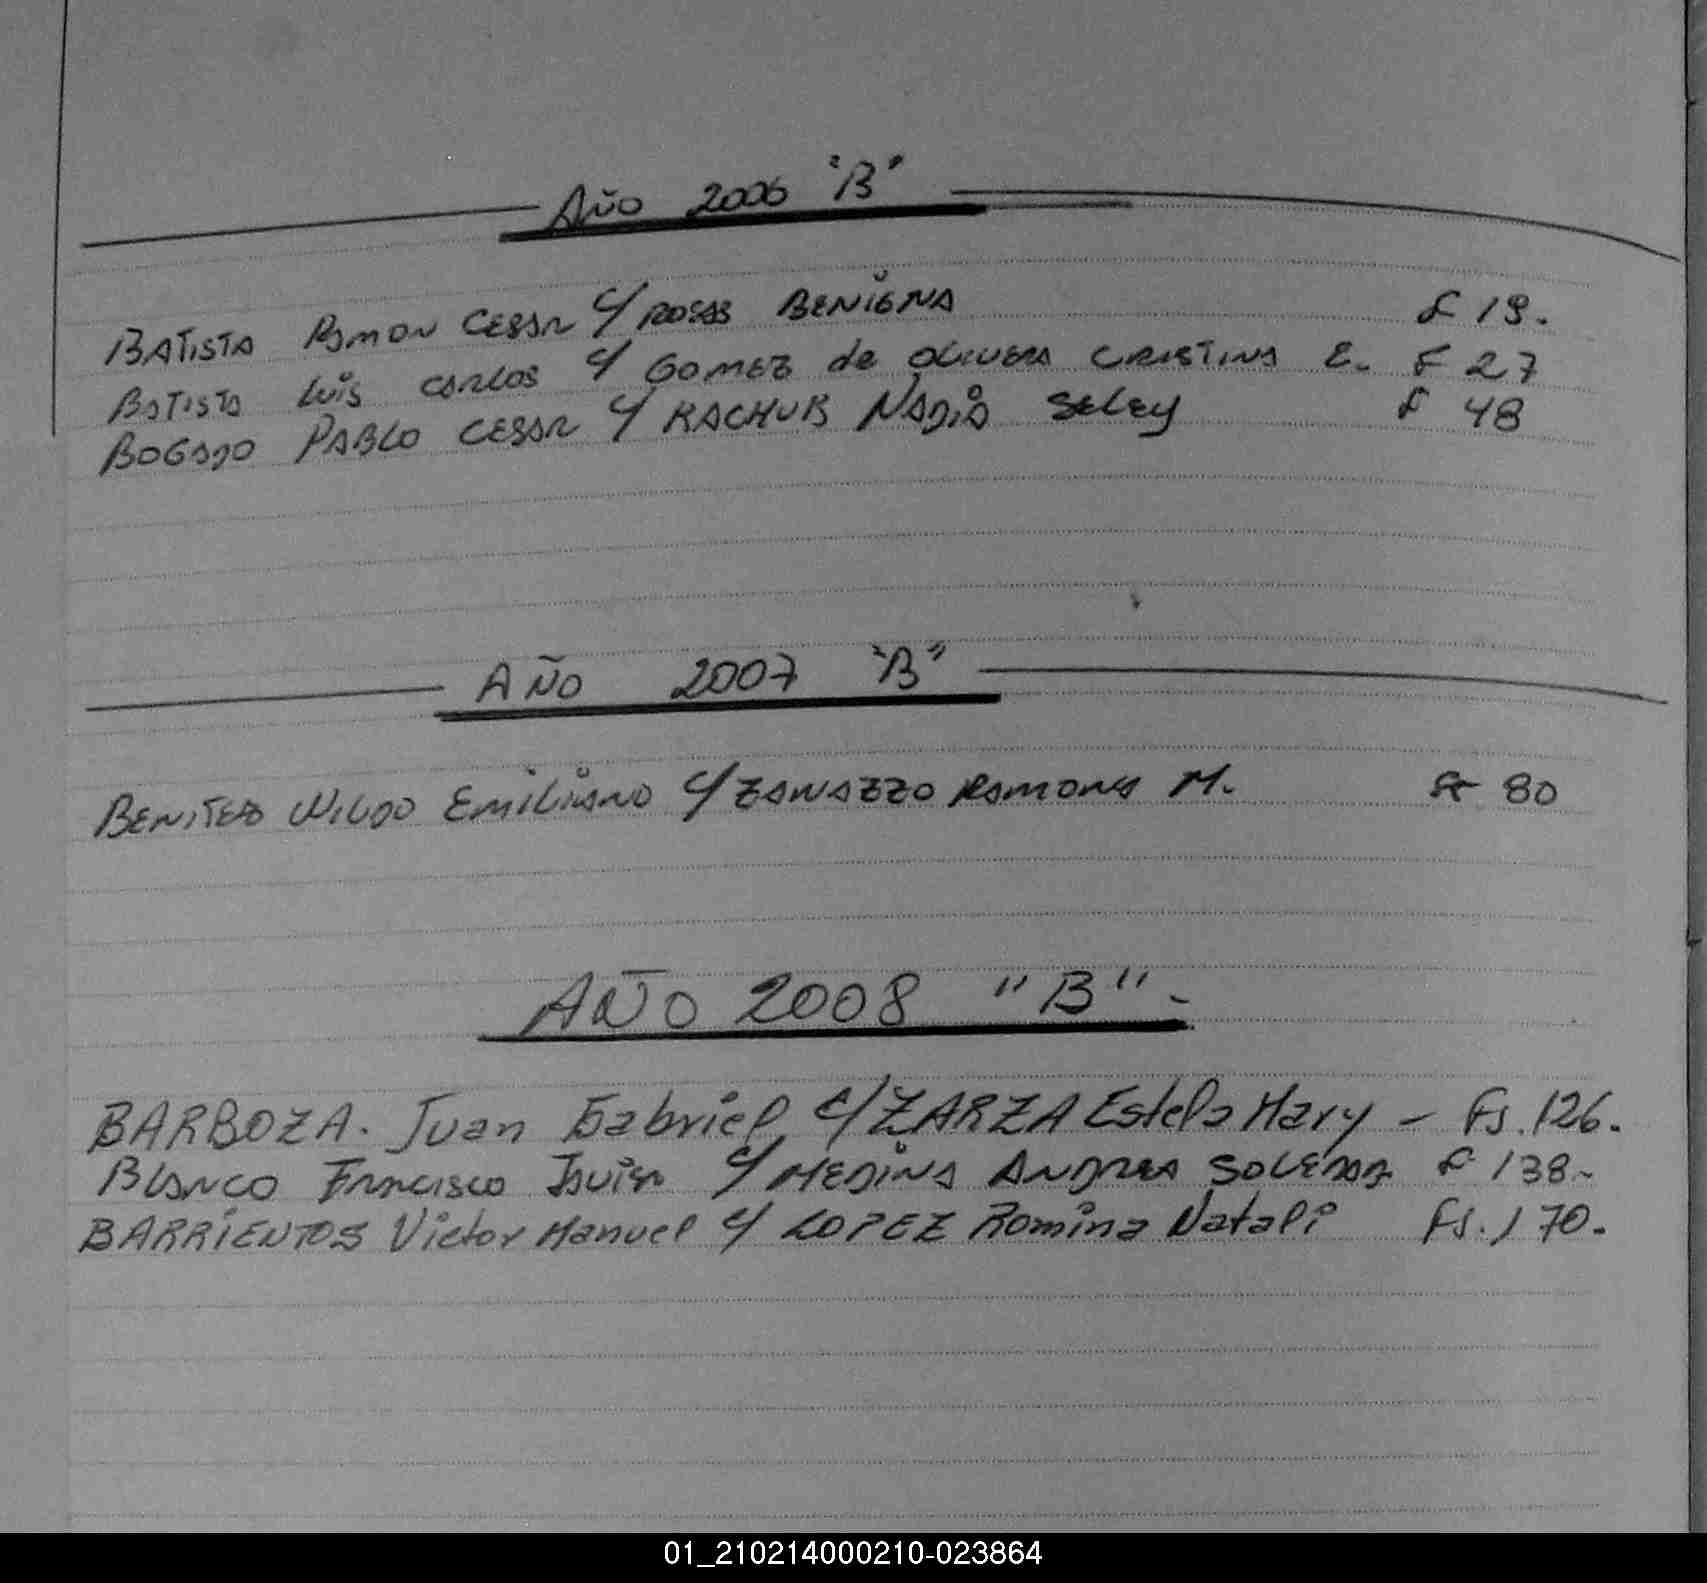 Año 2006 "B"
BATISTA RAMON CESAR C/ ROSAS BENIGNA F 19.
BATISTA LUIS CARLOS C/ GOMEZ de OLIVERA CRISTINA E. F 27
BOGADO PABLO CESAR C/ RACHUK NADIA SELEY F 48
AÑO 2007 "B"
BENITEZ WILDO EMILIANO C/ ZANAZZO RAMONA M. F 80
AÑO 2008 "B".-
BARBOZA. Juan Gabriel C/ ZARZA Estela Mary - Fs. 126.
BLANCO Francisco Javier C/ MEDINA ANDREA SOLEDAD F 138-
BARRIENTOS Victor Manuel C/ LOPEZ Romina Natali Fs. 170.
01_210214000210-023864